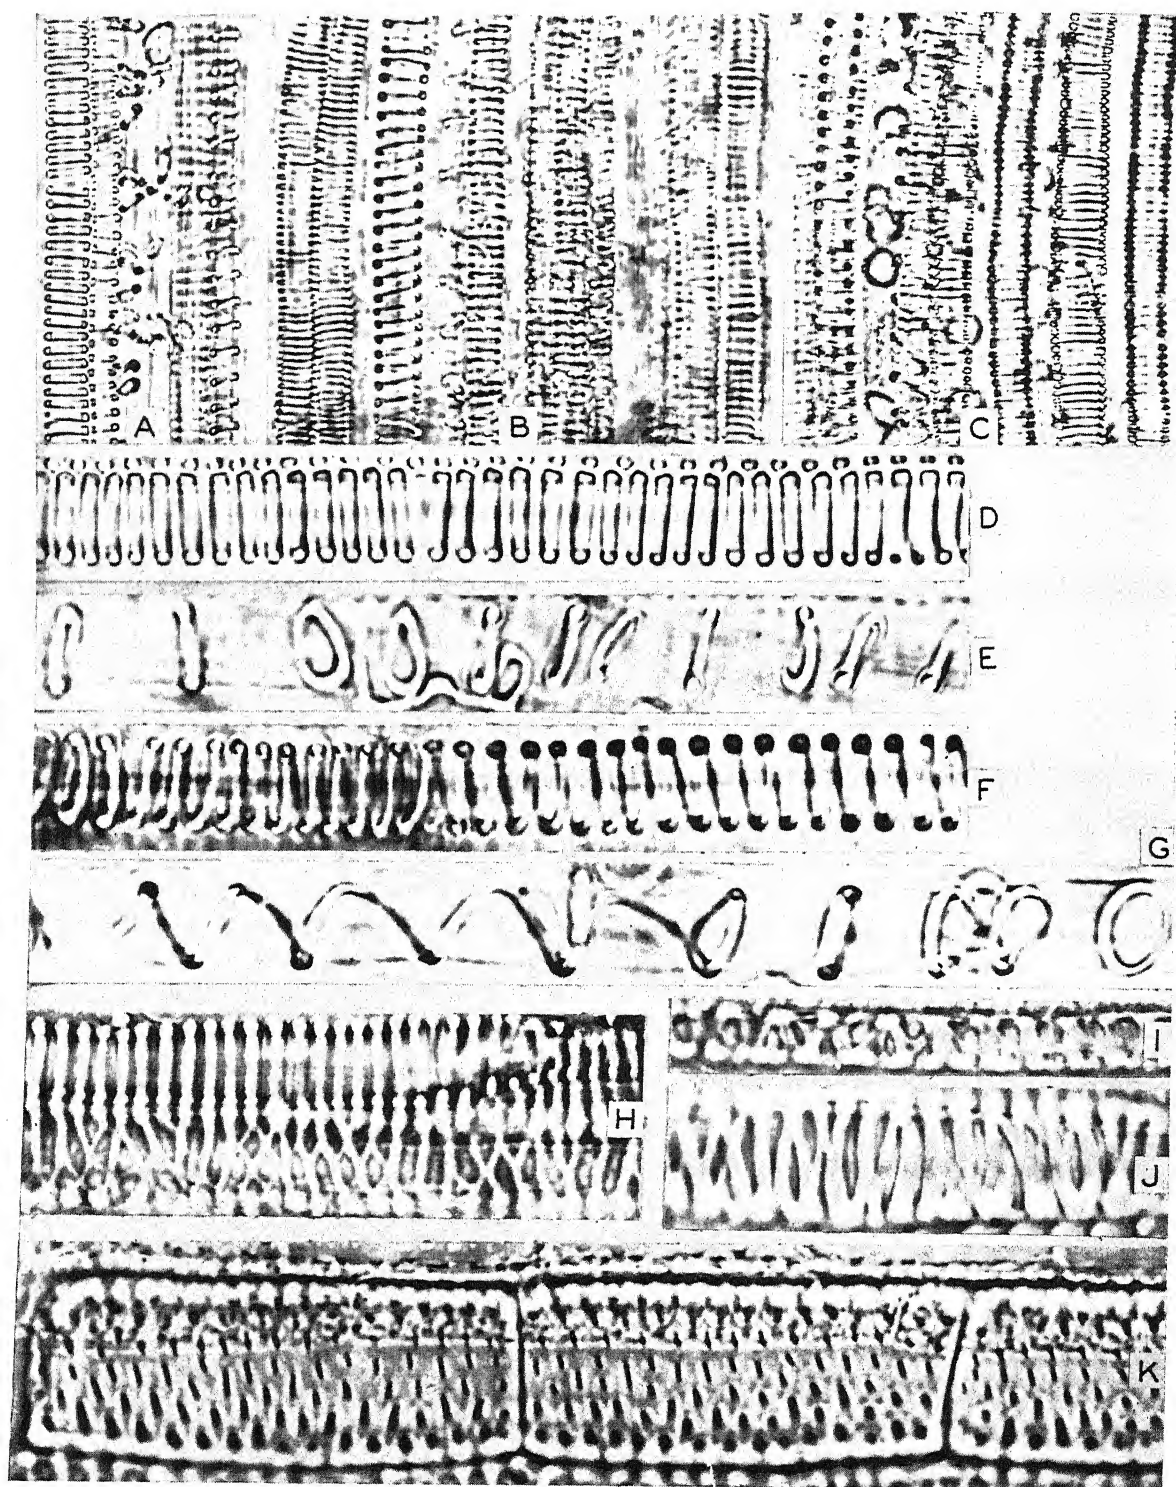 A B C
D
E
F
G
H
I
J
K